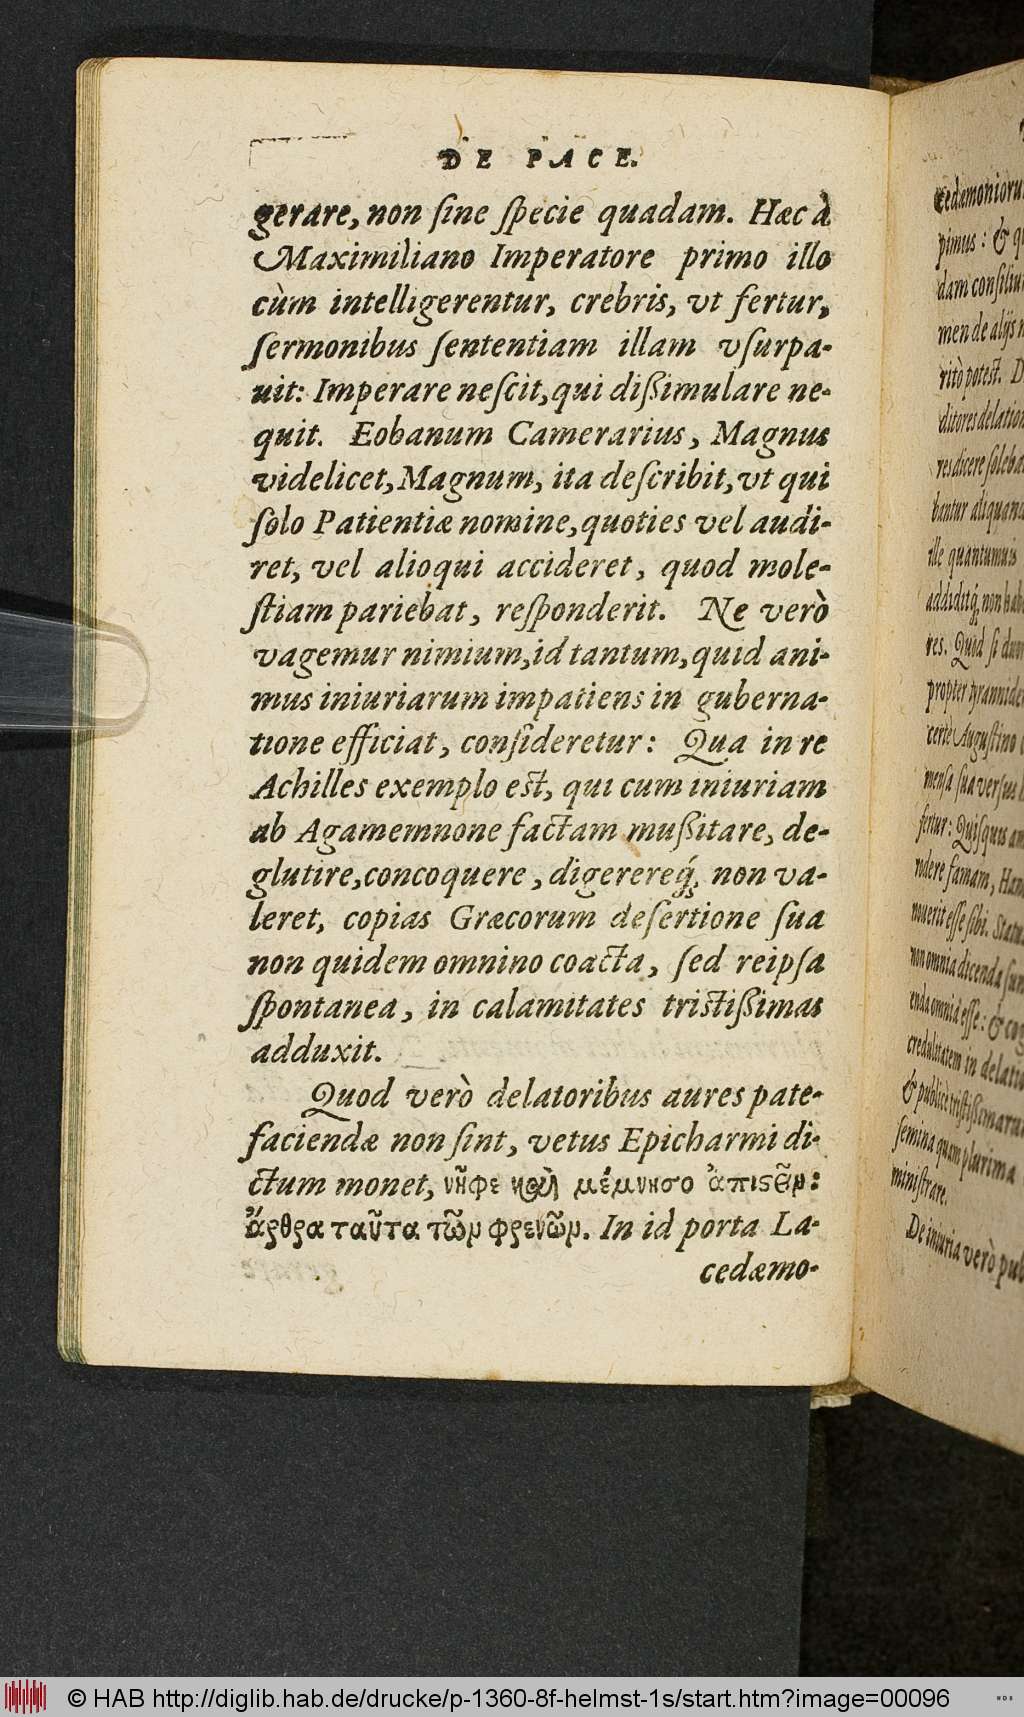 DE PACE.
gerare, non ſine ſpecie quadam. Hæc à
Maximiliano Imperatore primo illo
cùm intelligerentur, crebris, vt fertur,
ſermonibus ſententiam illam vſurpa-
uit: Imperare neſcit, qui dißimulare ne-
quit. Eobanum Camerarius, Magnus
videlicet, Magnum, ita deſcribit, vt qui
ſolo Patientiæ nomine, quoties vel audi-
ret, vel alioqui accideret, quod mole-
ſtiam pariebat, reſponderit. Ne verò
vagemur nimium, id tantum, quid ani-
mus iniuriarum impatiens in guberna-
tione efficiat, conſideretur: Qua in re
Achilles exemplo eſt, qui cum iniuriam
ab Agamemnone factam mußitare, de-
glutire, concoquere, digerereq́;, non va-
leret, copias Græcorum deſertione ſua
non quidem omnino coacta, ſed reipſa
ſpontanea, in calamitates triſtißimas
adduxit.
Quod verò delatoribus aures pate-
faciendæ non ſint, vetus Epicharmi di-
ctum monet, νῆφε καὶ μέμνησο ἀπιϛεῖν:
ἄρθρα ταῦτα τῶν φρενῶν. In id porta La-
cedæmo-
cedamoniorum
pimus: & qu
dam conſiliu
men de alijs n
ritò poteſt. D
ditores delation
res dicere ſoleba
bantur aliquand
ille quantumuis
additq́; non hab
res. Quòd ſi duo
propter tyrannide
certè Auguſtino
menſa ſua verſus
fertur: Quiſquis am
rodere famam, Han
nouerit eſſe ſibi. Statu
non omnia dicenda ſun
enda omnia eſſe: & cog
credulitatem in delatio
& publicè triſtißimarum
ſemina quam plurima
miniſtrare.
De iniuria verò pub
© HAB http://diglib.hab.de/drucke/p-1360-8f-helmst-1s/start.htm?image=00096